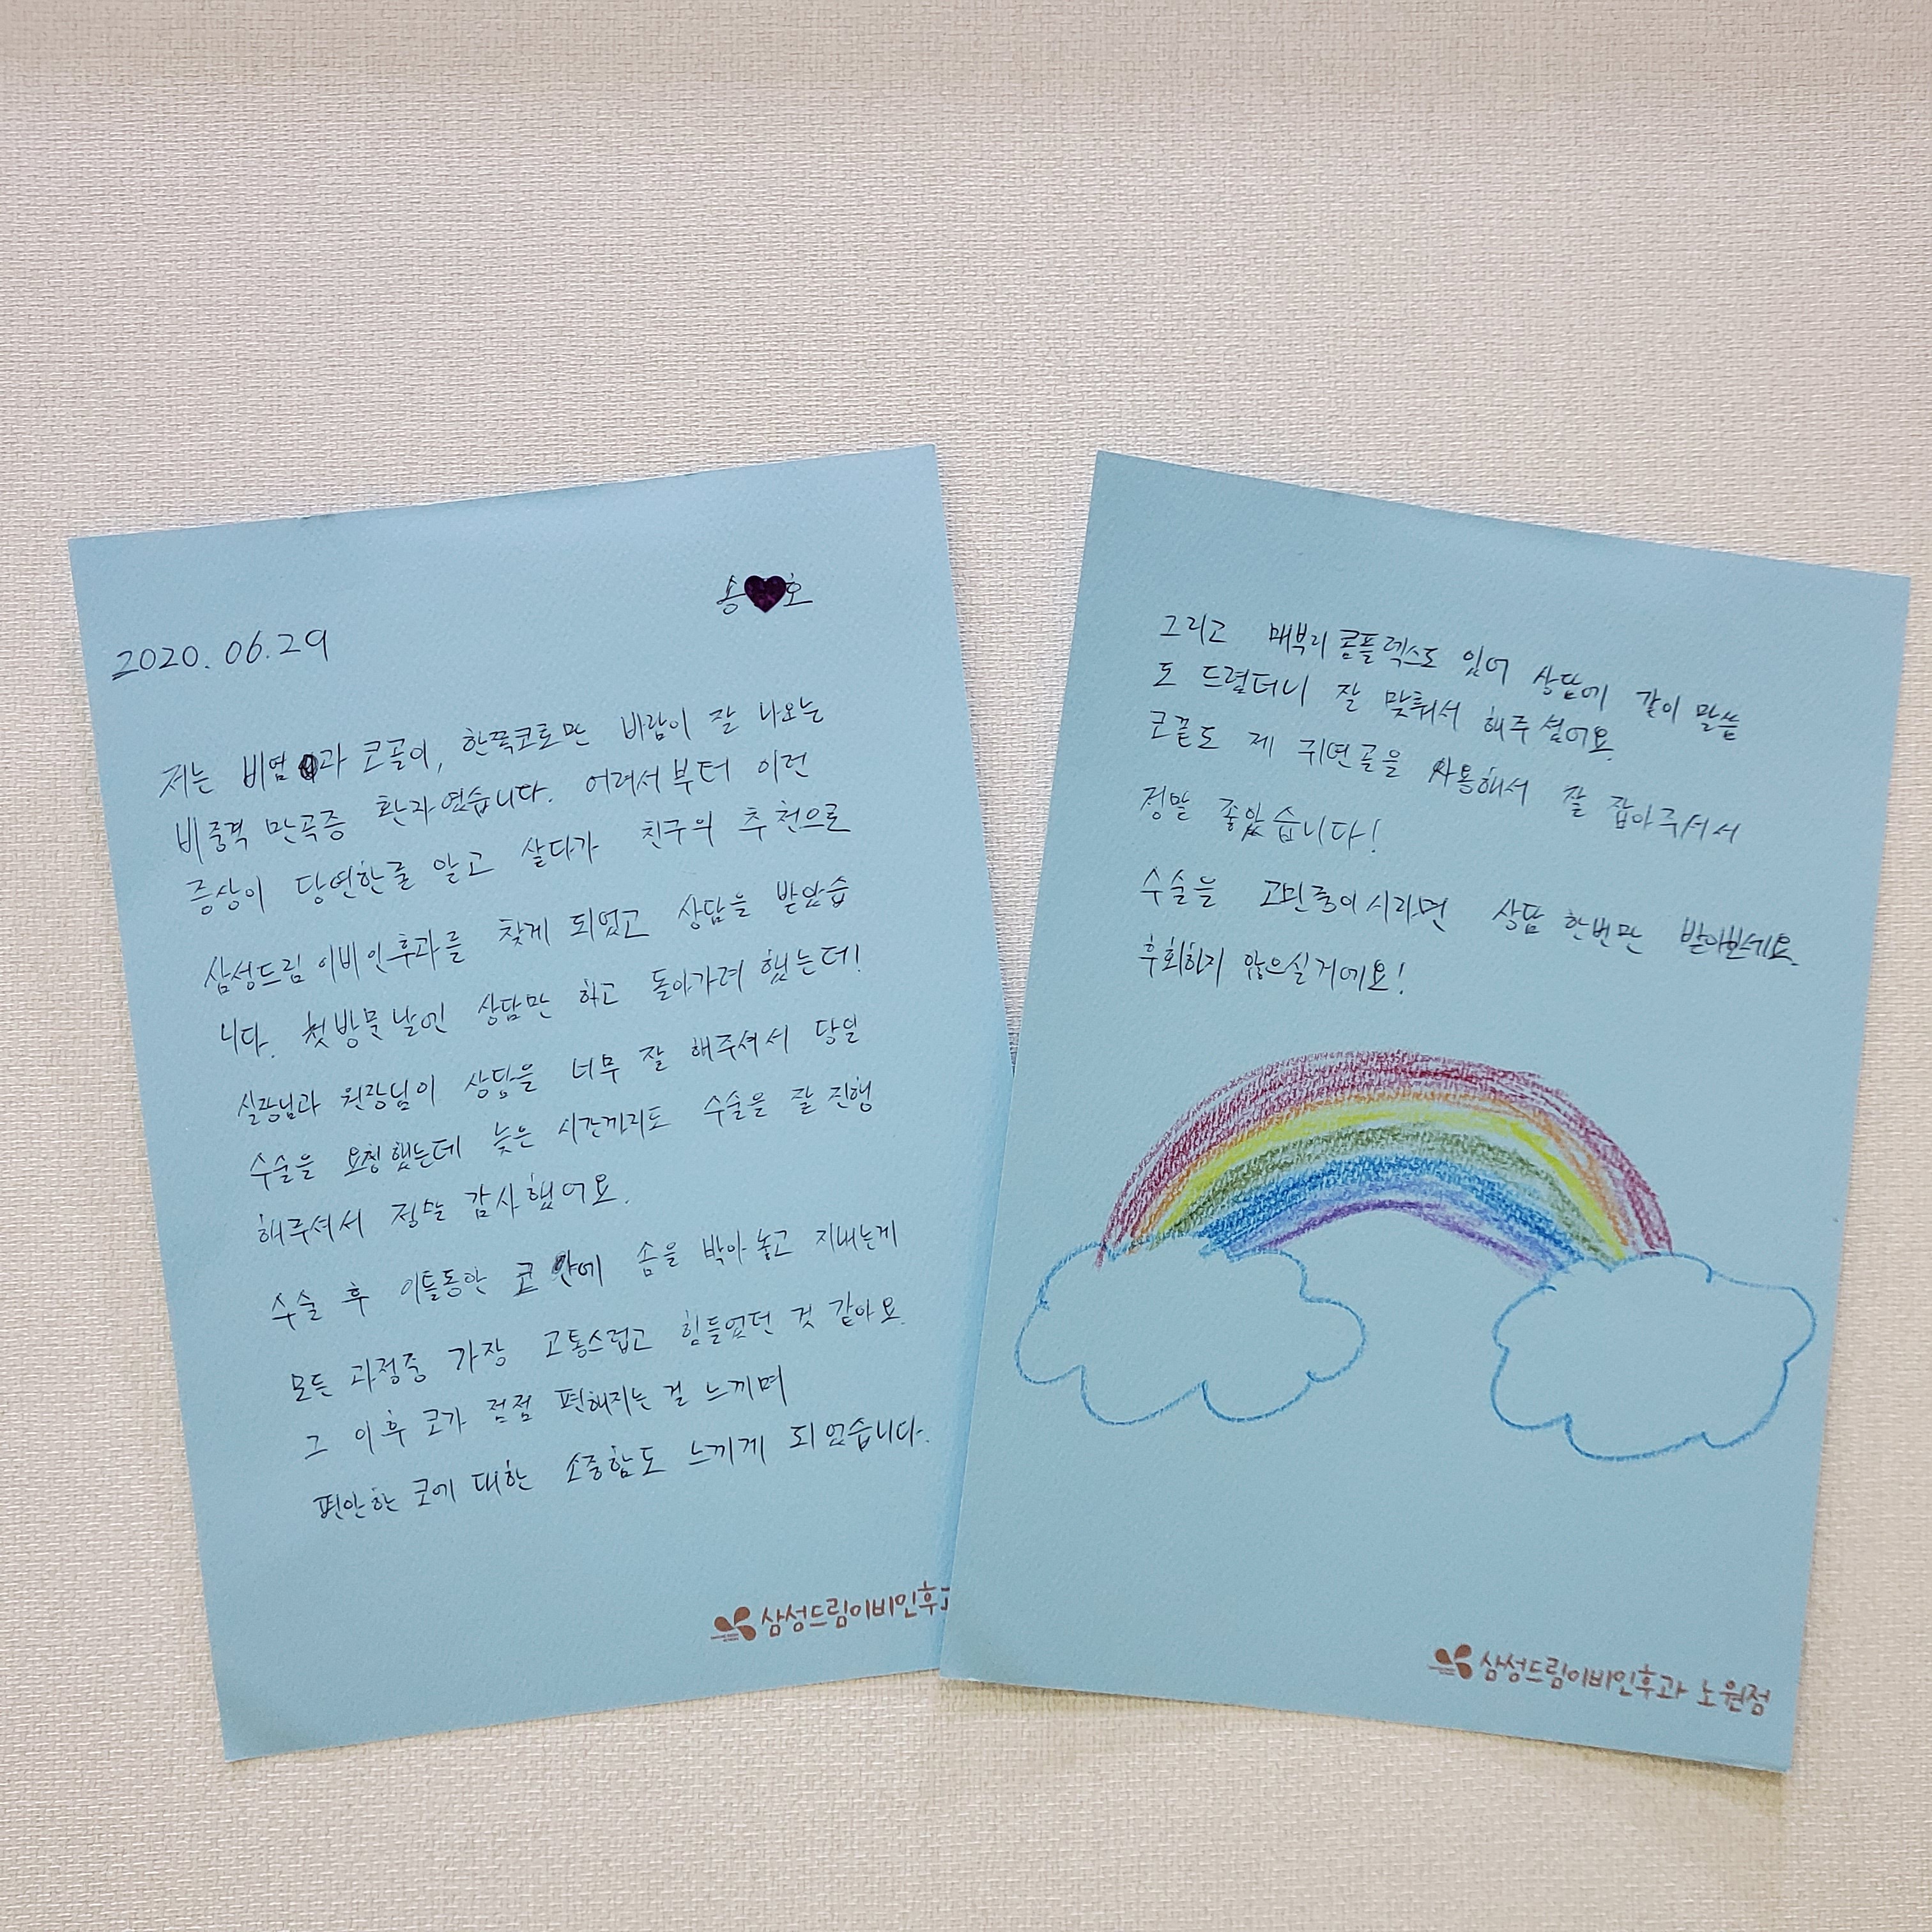 송♥호
2020. 06. 29
저는 비염과 코골이, 한쪽코로만 바람이 잘 나오는
비중격 만곡증 환자였습니다. 어려서부터 이런
증상이 당연한줄 알고 살다가 친구의 추천으로
삼성드림이비인후과를 찾게 되었고 상담을 받았습
니다. 첫방문날엔 상담만 하고 돌아가려 했는데!
실장님과 원장님이 상담을 너무 잘 해주셔서 당일
수술을 요청했는데 늦은 시간까지도 수술을 잘 진행
해주셔서 정말 감사했어요.
수술 후 이틀동안 코 안에 솜을 박아놓고 지내는게
모든 과정중 가장 고통스럽고 힘들었던 것 같아요.
그 이후 코가 점점 편해지는 걸 느끼며
편안한 코에 대한 소중함도 느끼게 되었습니다.
삼성드림이비인후
그리고 매부리 콤플렉스도 있어 상담에 같이 말씀
도 드렸더니 잘 맞춰서 해주셨어요.
코끝도 제 귀연골을 사용해서 잘 잡아주셔서
정말 좋았습니다!
수술을 고민중이시라면 상담 한번만 받아보세요.
후회하지 않으실거에요!
삼성드림이비인후과 노원점